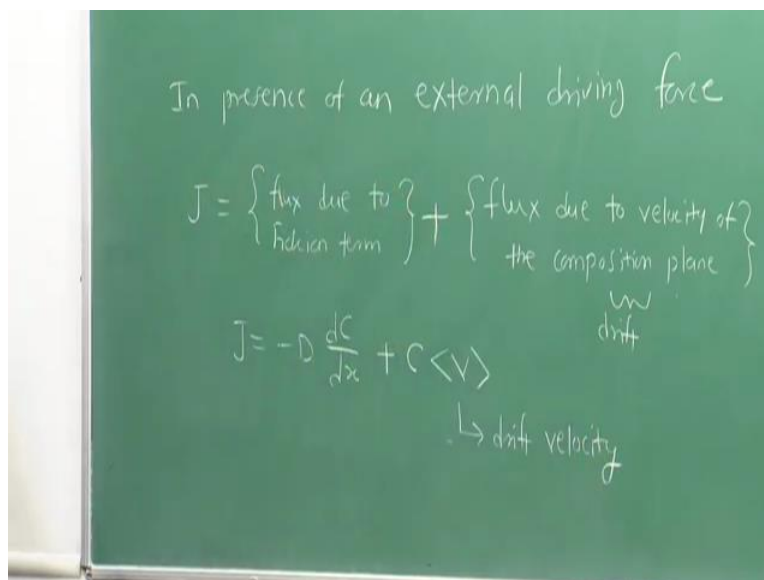 In presence of an external driving force
J = { flux due to Fickian term } + { flux due to velocity of the composition plane }
drift
J = -D dC/dx + C <v>
↳ drift velocity